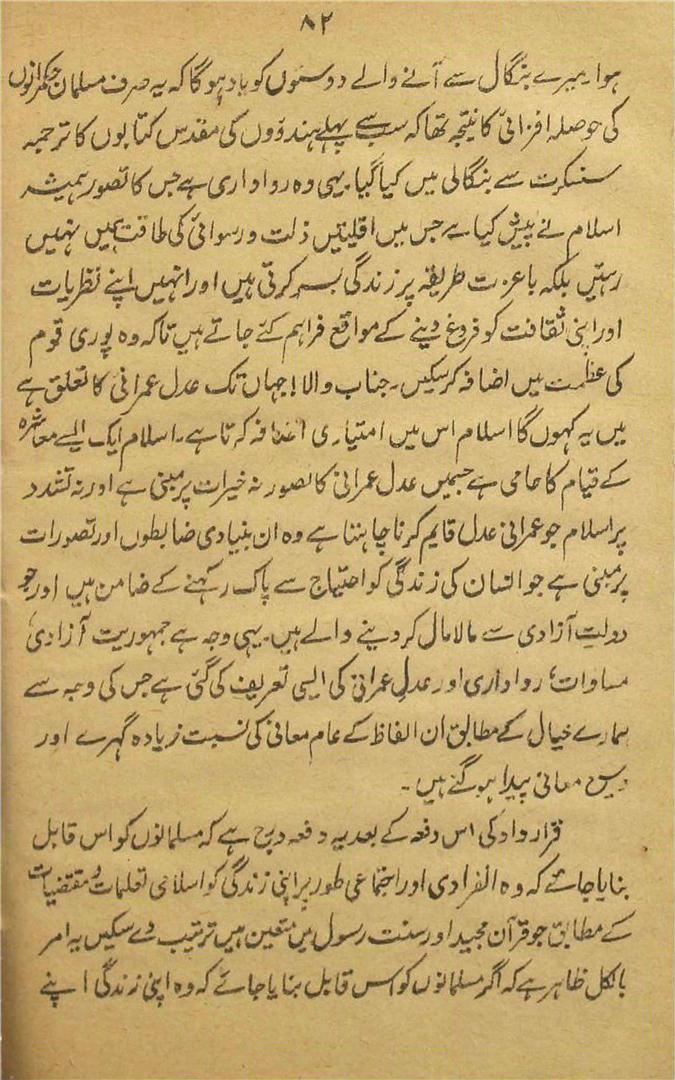 ۸۲
ہوا۔ میرے بنگال سے آنے والے دوستوں کو یاد ہوگا کہ یہ صرف مسلمان حکمرانوں
کی حوصلہ افزائی کا نتیجہ تھا کہ سب سے پہلے ہندوؤں کی مقدس کتابوں کا ترجمہ
سنسکرت سے بنگالی میں کیا گیا۔ یہی وہ رواداری ہے جس کا تصور ہمیشہ
اسلام نے پیش کیا ہے جس میں اقلیتیں ذلت و رسوائی کی طاقت ہمیں نہیں
رہتیں بلکہ باعزت طریقہ پر زندگی بسر کرتی ہیں اور انہیں اپنے نظریات
اور اپنی ثقافت کو فروغ دینے کے مواقع فراہم کئے جاتے ہیں تاکہ وہ پوری قوم
کی عظمت میں اضافہ کرسکیں۔ جناب والا! جہاں تک عدل عمرانی کا تعلق ہے
میں یہ کہوں گا اسلام اس میں امتیازی اضافہ کرتا ہے۔ اسلام ایک ایسے معاشرہ
کے قیام کا حامی ہے جسمیں عدل عمرانی کا تصور نہ خیرات پر مبنی ہے اور نہ تشدد
پر اسلام جو عمرانی عدل قایم کرنا چاہتا ہے وہ ان بنیادی ضابطوں اور تصورات
پر مبنی ہے جو انسان کی زندگی کو احتیاج سے پاک رکہنے کے ضامن ہیں اور جو
دولتِ آزادی سے مالا مال کر دینے والے ہیں۔ یہی وجہ ہے جمہوریت آزادی،
مساوات، رواداری اور عدلِ عمرانی کی ایسی تعریف کی گئی ہے جس کی وجہ سے
ہمارے خیال کے مطابق ان الفاظ کے عام معانی کی نسبت زیادہ گہرے اور
وسیع معانی پیدا ہوگئے ہیں۔
قرارداد کی اس دفعہ کے بعد یہ دفعہ درج ہے کہ مسلمانوں کو اس قابل
بنایا جائے کہ وہ انفرادی اور اجتماعی طور پر اپنی زندگی کو اسلامی تعلیمات و مقتضیات
کے مطابق جو قرآن مجید اور سنت رسول میں متعین ہیں ترتیب دے سکیں یہ امر
بالکل ظاہر ہے کہ اگر مسلمانوں کو اس قابل بنایا جائے کہ وہ اپنی زندگی اپنے